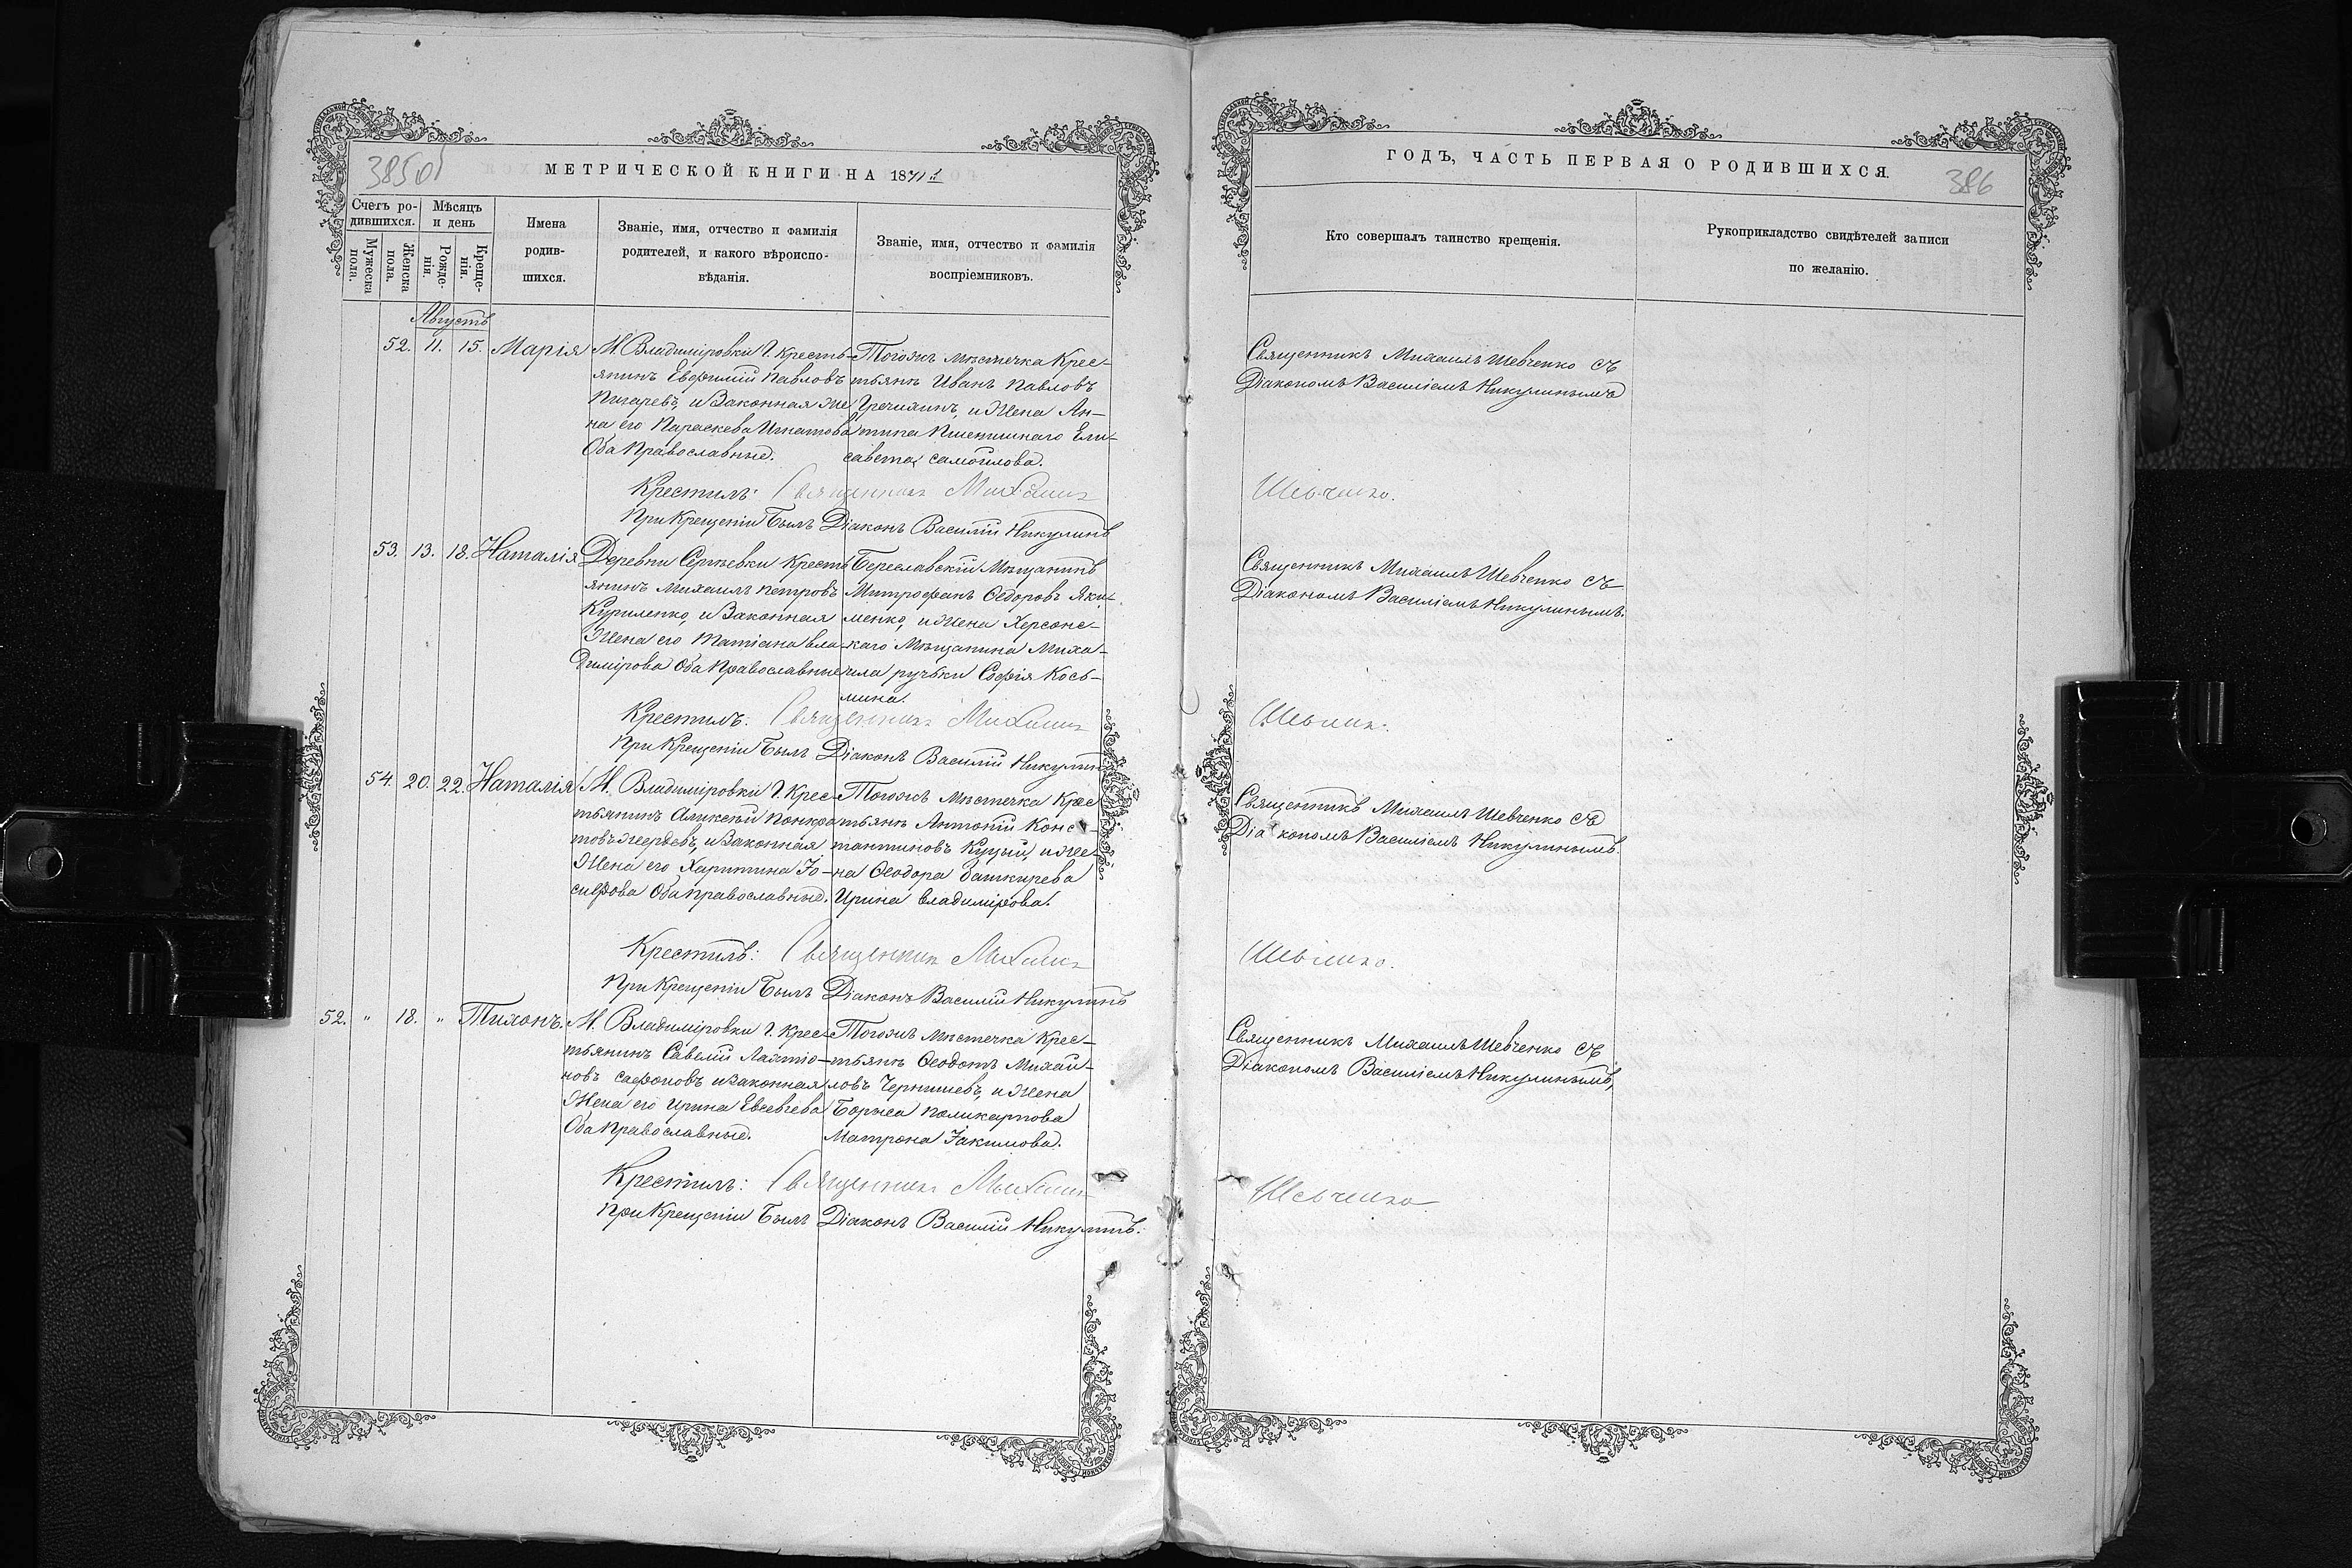 МЕТРИЧЕСКОЙ КНИГИ НА 1871й
Счетъ ро-
дившихся.
Мѣсяцъ
и день
Мужеска
пола.
Женска
пола.
Рожде-
нія.
Креще-
нія.
Имена
родив-
шихся.
Званіе, имя, отчество и фамилія
родителей, и какого вѣроиспо-
вѣданія.
Званіе, имя, отчество и фамилія
воспріемниковъ.
Августъ
52. 11. 15. Марія
М. Владиміровки Г. кресть-
янинъ Евфимій Павловъ
Пигаревъ, и Законная же
на его Параскева Игнатова
Оба Православные.
Тогожъ мѣстечка Крес-
тьянъ Иванъ Павловъ
Гречихинъ, и Жена Ан-
типа Пшенишнаго Ели-
савета самоилова.
Крестилъ: Священникъ Михаилъ
При Крещеніи Былъ Діаконъ Василій Никулинъ
53. 13. 18. Наталія
Деревни Сергѣевки Кресть
янинъ Михаилъ петровъ
Куриленко, и Законная
Жена его Татіана вла-
димірова Оба Православные
Береславскій Мѣщанинъ
Митрофанъ Ѳедоровъ Яки-
менко, и Жена Херсонс-
каго Мѣщанина Миха-
ила ручьки Софія Кось-
мина.
Крестилъ: Священникъ Михаилъ
При Крещеніи Былъ Діаконъ Василій Никулинъ
54. 20. 22. Наталія
М. Владиміровки Г. Крес-
тьянинъ Аликсѣй понкра
товъ Жеребевъ, и Законная
Жена его Харитина Іо-
сифова Оба православные.
Тогожъ Мѣстечка Крес
тьянъ Антоній Конс-
тантиновъ Куцый, и Же-
на Ѳеодора башкирева
Ирина владимірова.
Крестилъ: Священникъ Михаилъ
При Крещеніи Былъ Діаконъ Василій Никулинъ
52. " 18. " Тихонъ.
М. Владиміровки Г. крес-
тьянинъ Савелій Лахтіо-
новъ сафоновъ и законная
Жена его Ирина Евсевіева
Оба Православные.
Тогожъ Мѣстечка Крес-
тьянъ Ѳеодотъ Михай-
ловъ Чернишевъ, и Жена
Бориса поликарпова
Матрона Іакимова.
Крестилъ: Священникъ Михаилъ
При Крещеніи Былъ Діаконъ Василій Никулинъ.
ГОДЪ, ЧАСТЬ ПЕРВАЯ О РОДИВШИХСЯ.
386
Кто совершалъ таинство крещенія.
Рукоприкладство свидѣтелей записи
по желанію.
Священникъ Михаилъ Шевченко съ
Діакономъ Василіемъ Никулинымъ
Шевченко.
Священникъ Михаилъ Шевченко съ
Діакономъ Василіемъ Никулинымъ.
Шевченко.
Священникъ Михаилъ Шевченко съ
Діакономъ Василіемъ Никулинымъ.
Шевченко.
Священникъ Михаилъ Шевченко съ
Діакономъ Василіемъ Никулинымъ,
Шевченко